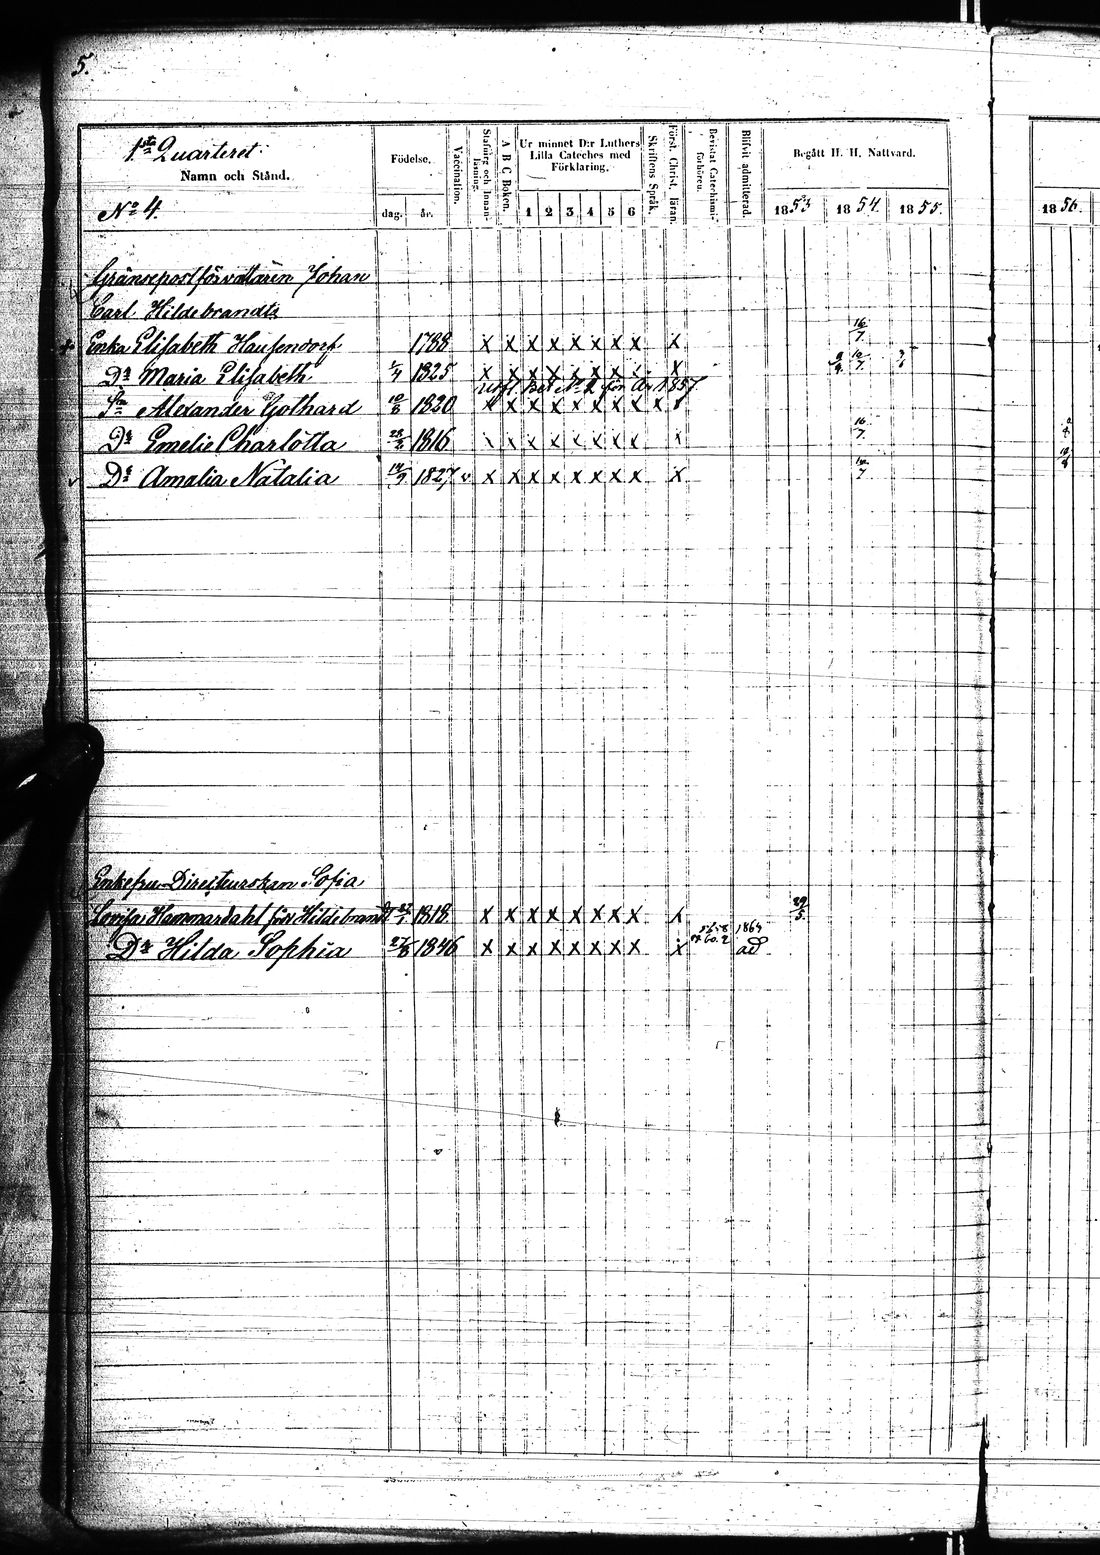 5.
1sta Quarteret:
Namn och Stånd.
No 4.
Födelse.
dag. år.
Vaccination.
Stafning och Innanläsning.
A B C Boken.
Ur minnet D:r Luthers Lilla Cateches med Förklaring.
1 2 3 4 5 6
Skriftens Språk.
Först. Christ. läran.
Bevistat Catechismi-förhören.
Blifvit admitterad.
Begått H. H. Nattvard.
1853 1854. 1855. 1856.
Gränsepostförvaltaren Johan
Carl Hildebrandts
Enka Elisabeth Hausendorf 1788 x x x x x x x x x 16/7
Dr Maria Elisabeth 1/4 1825 x x x x x x x x x
Bet No 2 för År 1857
Sn Alexander Gothard 10/8 1820 x x x x x x x x x x
Dr Emelie Charlotta 1816 x x x x x x x x x 16/7
Dr Amalia Natalia 14/9 1827 v x x x x x x x x x 16/7
Enkefru Directeurskan Sofia
Lovisa Hammardahl född Hildebrandt 1818 x x x x x x x x x 29/5.
Dr Hilda Sophia 27/8 1846 x x x x x x x x x 1864 ad.